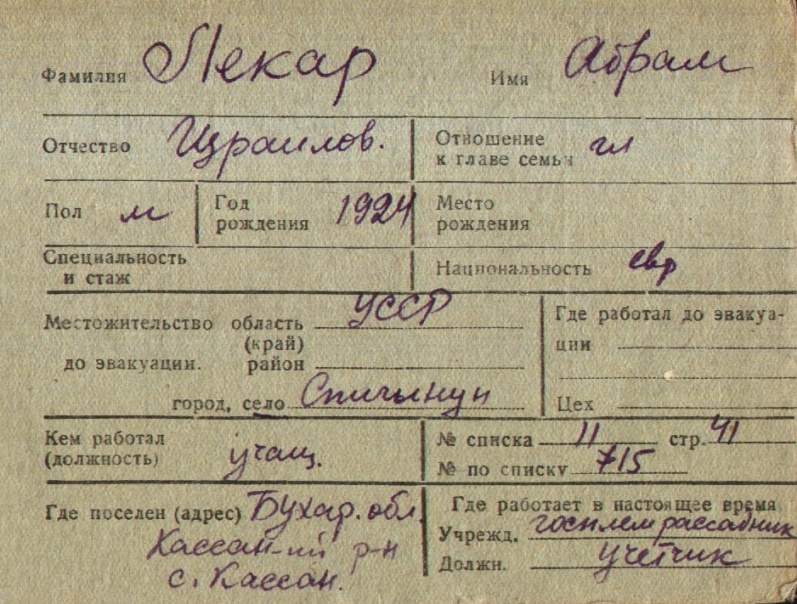 Фамилия Лекар Имя Абрам
Отчество Израилов. Отношение к главе семьи гл
Пол м Год рождения 1924 Место рождения
Специальность и стаж Национальность евр
Местожительство до эвакуации. область (край) УССР Где работал до эвакуации
район
город, село Цех
Кем работал (должность) учащ. № списка 11 стр. 41
№ по списку 715
Где поселен (адрес) Бухар. обл. Где работает в настоящее время
Кассан-ий р-н Учрежд. госплемрассадник
с. Кассан. Должн. учетчик